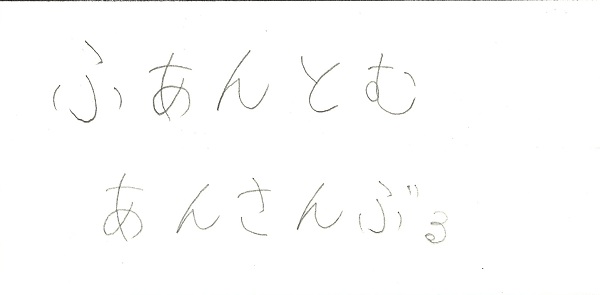 ふあんとむ
あんさんぶる